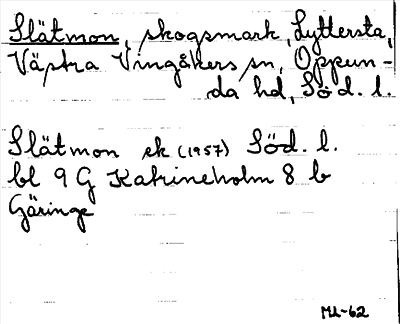 Slätmon, skogsmark, Lyttersta,
Västra Vingåkers sn, Oppun-
da hd, Söd. l.
Slätmon ek (1957) Söd. l.
bl 9 G Katrineholm 8 b
Gäringe
ML-62